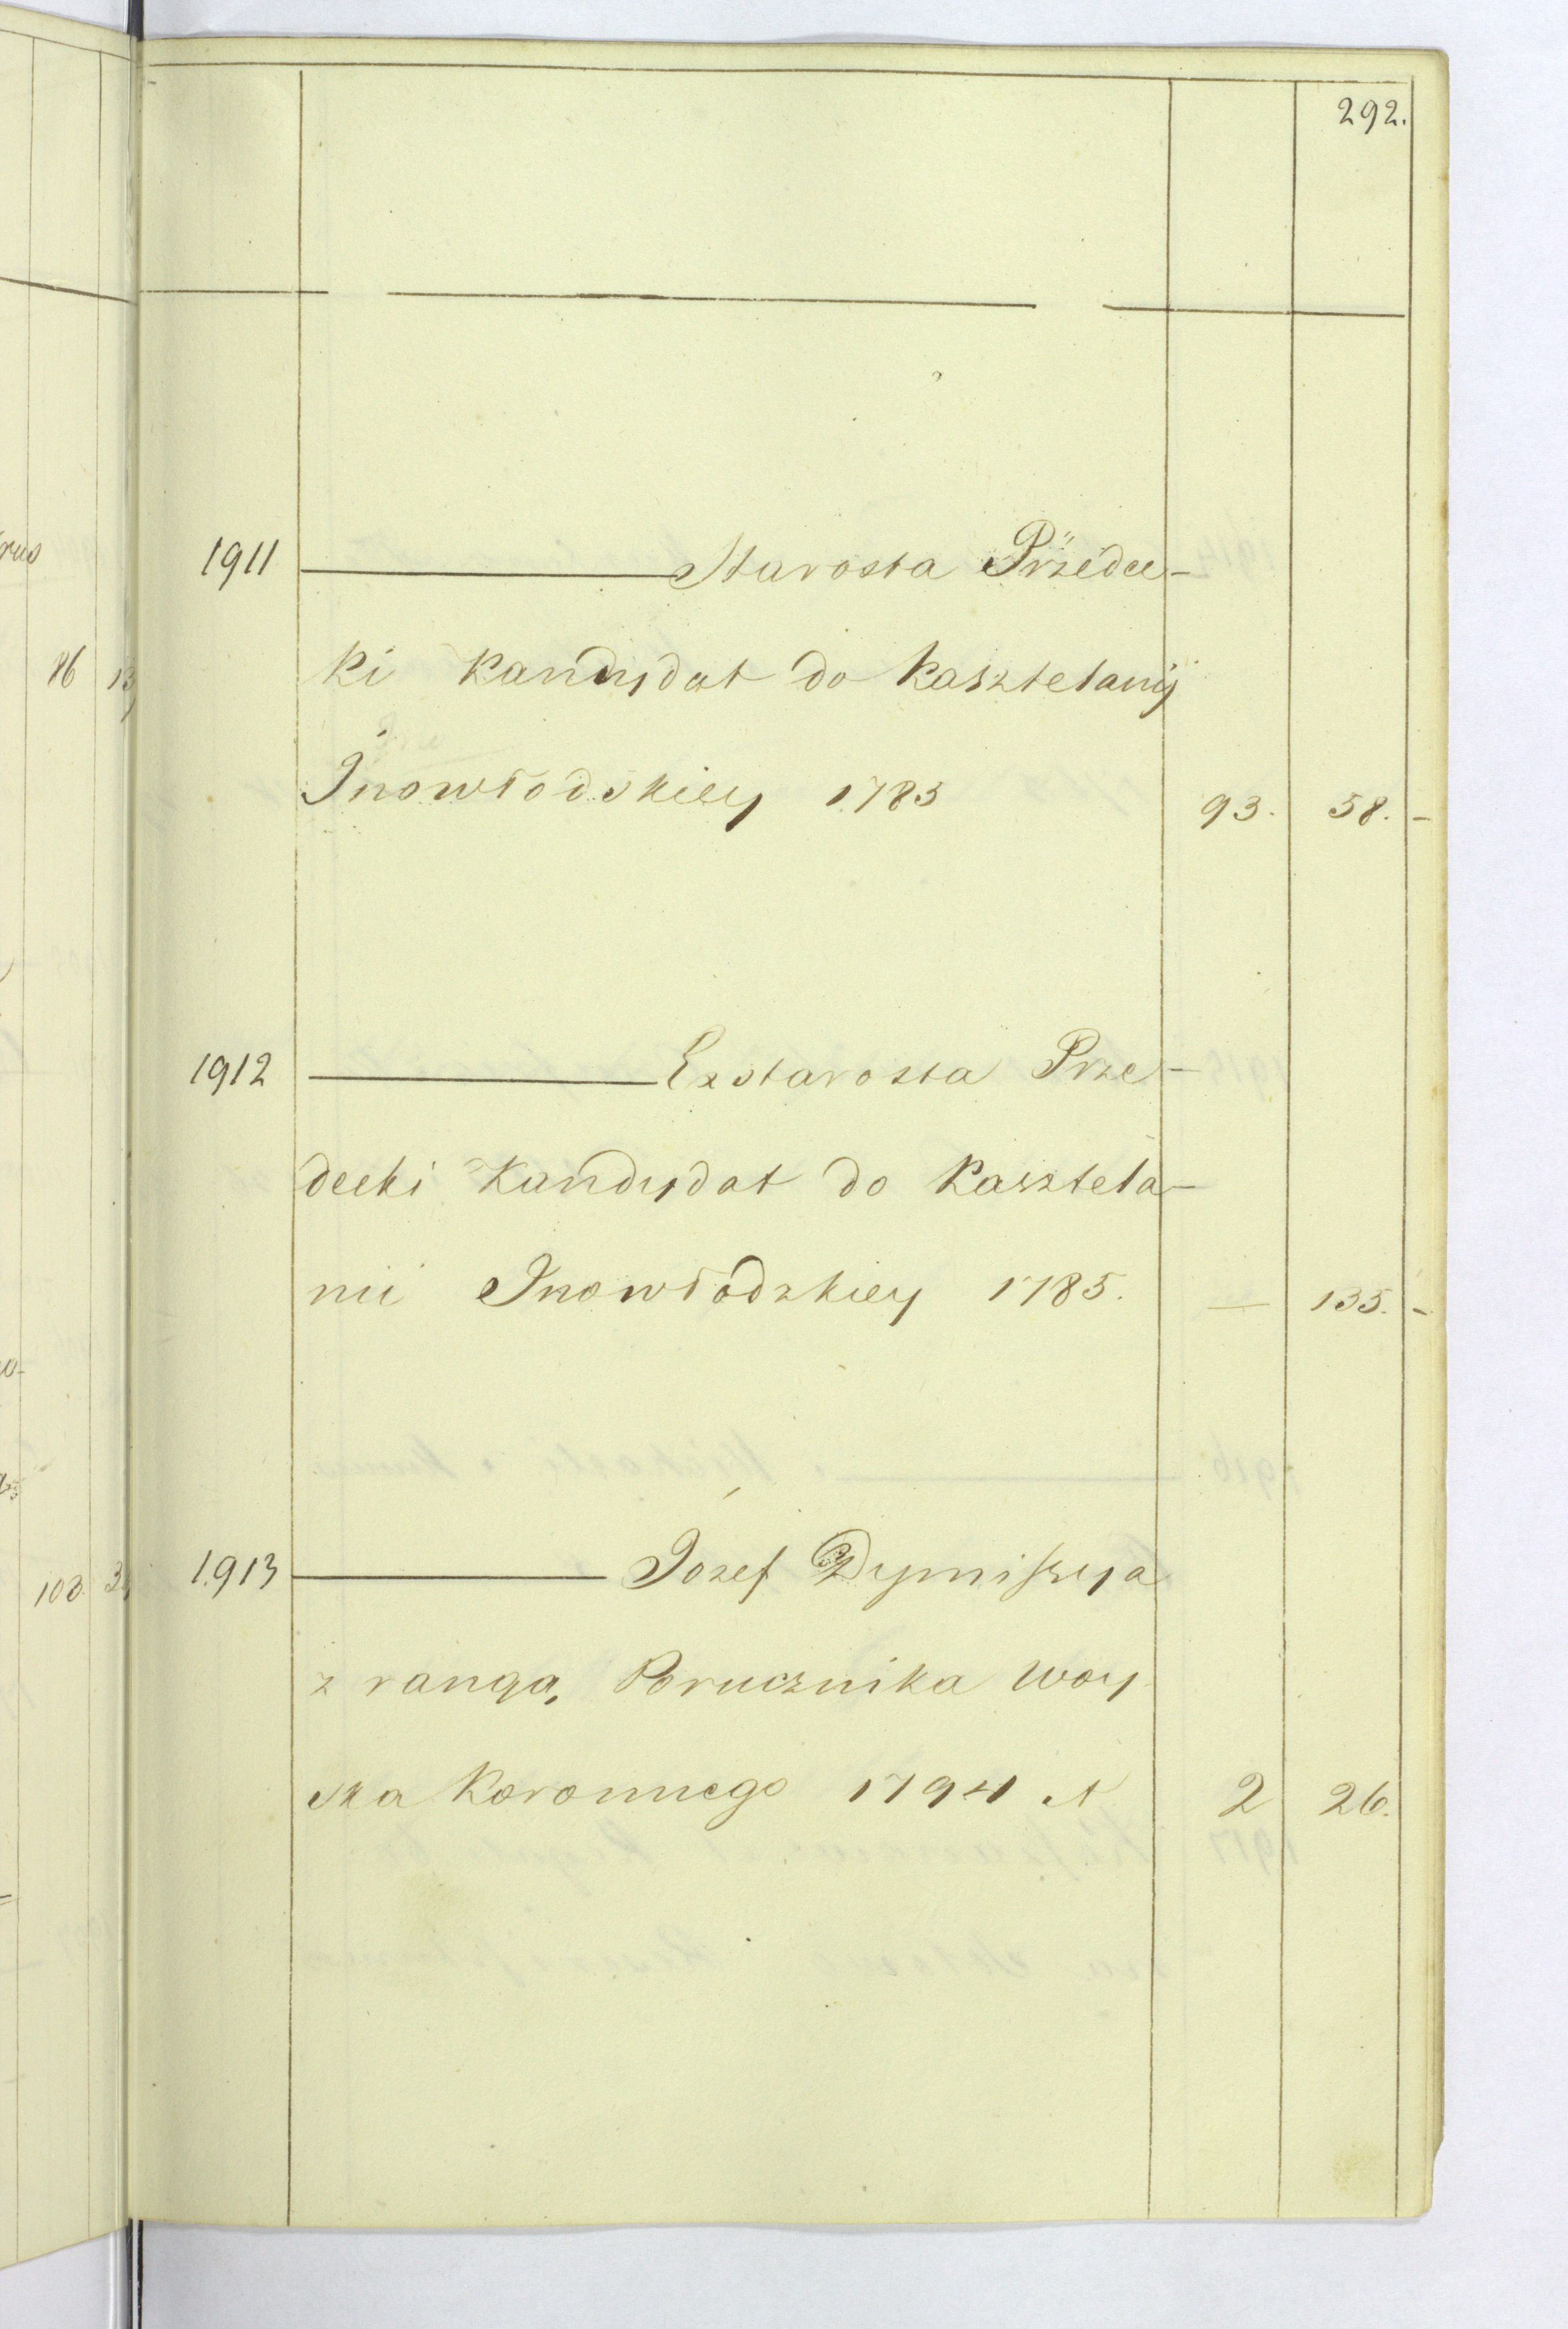 292.
1911 ——— Starosta Przedec-
ki kandydat do kasztelanij
Inowłodskiey 1783 93. 58. -
1912 ——— Exstarosta Prze-
decki kandydat do kasztela-
nii Inowłodzkiey 1785. — 135. -
1913 ——— Jozef Dymiszya
z rangą Porucznika Woy
ska koronnego 1794 2 26.